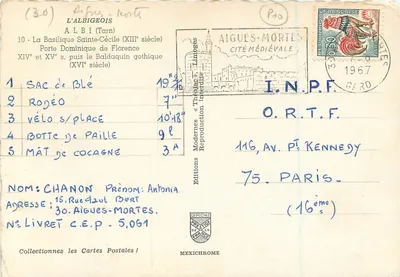 (30) Aigues-Morte
P10
L'ALBIGEOIS
ALBI (Tarn)
10 - La Basilique Sainte-Cécile (XIIIe siècle)
Porte Dominique de Florence
XIVe et XVe s., puis le Baldaquin gothique
(XVIe siècle)
1 SAC de Blé 19"
2 RODÉO 7"
3 VÉLO S/PLACE 10'18"
4 BOTTE de PAILLE 9
5 MÂT de COCAGNE 3
NOM: CHANON PRÉNOM: Antonia
ADRESSE: 15, Rue Paul Bert
30. AIGUES-MORTES.
No LIVRET C.E.P. 5,061
Collectionnez les Cartes Postales !
Editions Modernes « Théojac », Limoges
Reproduction interdite
AIGUES-MORTES
CITÉ MÉDIÉVALE
1967
GARD
0,30
I.N.P.F
O.R.T.F.
116, AV. Pt KENNEDY
75. PARIS.
(16ème)
MEXICHROME